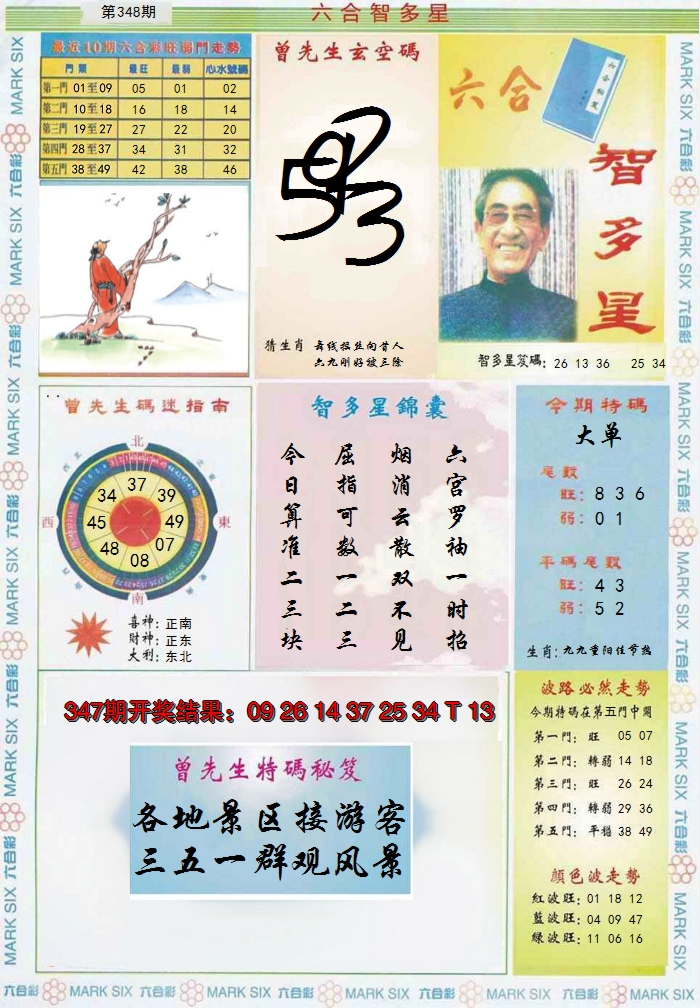 第348期
六合智多星
最近10期六合彩旺弱門走勢
門票 最旺 最弱 心水號碼
第一門 01至09 05 01 02
第二門 10至18 16 18 14
第三門 19至27 27 22 20
第四門 28至37 34 31 32
第五門 38至49 42 38 46
曾先生玄空碼
猜生肖 舞线拉丝向昔人
六九刚好被三除
六合
智多星
智多星笈碼: 26 13 36 25 34
曾先生碼迷指南
北
西
東
南
34 37 39
45 49
48 07
08
喜神: 正南
财神: 正东
大利: 东北
智多星錦囊
六宫罗袖一时招
烟消云散双不见
屈指可数一二三
今日算准二三块
今期特碼
大单
尾數
旺: 8 3 6
弱: 0 1
平碼尾數
旺: 4 3
弱: 5 2
生肖: 九九重阳佳节挡
347期开奖结果：09 26 14 37 25 34 T 13
曾先生特碼秘笈
各地景区接游客
三五一群观风景
波路必然走勢
今期特碼在第五門中開
第一門: 旺 05 07
第二門: 轉弱 14 18
第三門: 旺 26 24
第四門: 轉弱 29 36
第五門: 平穩 38 49
顔色波走勢
紅波旺: 01 18 12
藍波旺: 04 09 47
綠波旺: 11 06 16
六合彩 MARK SIX 六合彩 MARK SIX 六合彩 MARK SIX 六合彩 MARK SIX 六合彩